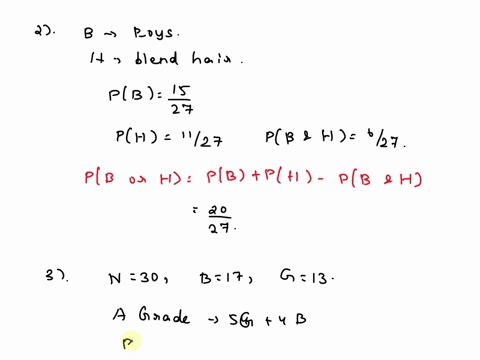 2). B → Boys.
H → blend hair.
P(B) = 15/27
P(H) = 11/27 P(B & H) = 6/27.
P(B or H) = P(B) + P(H) - P(B & H)
= 20/27.
3). N = 30, B = 17, G = 13.
A Grade → 5G + 4B
P